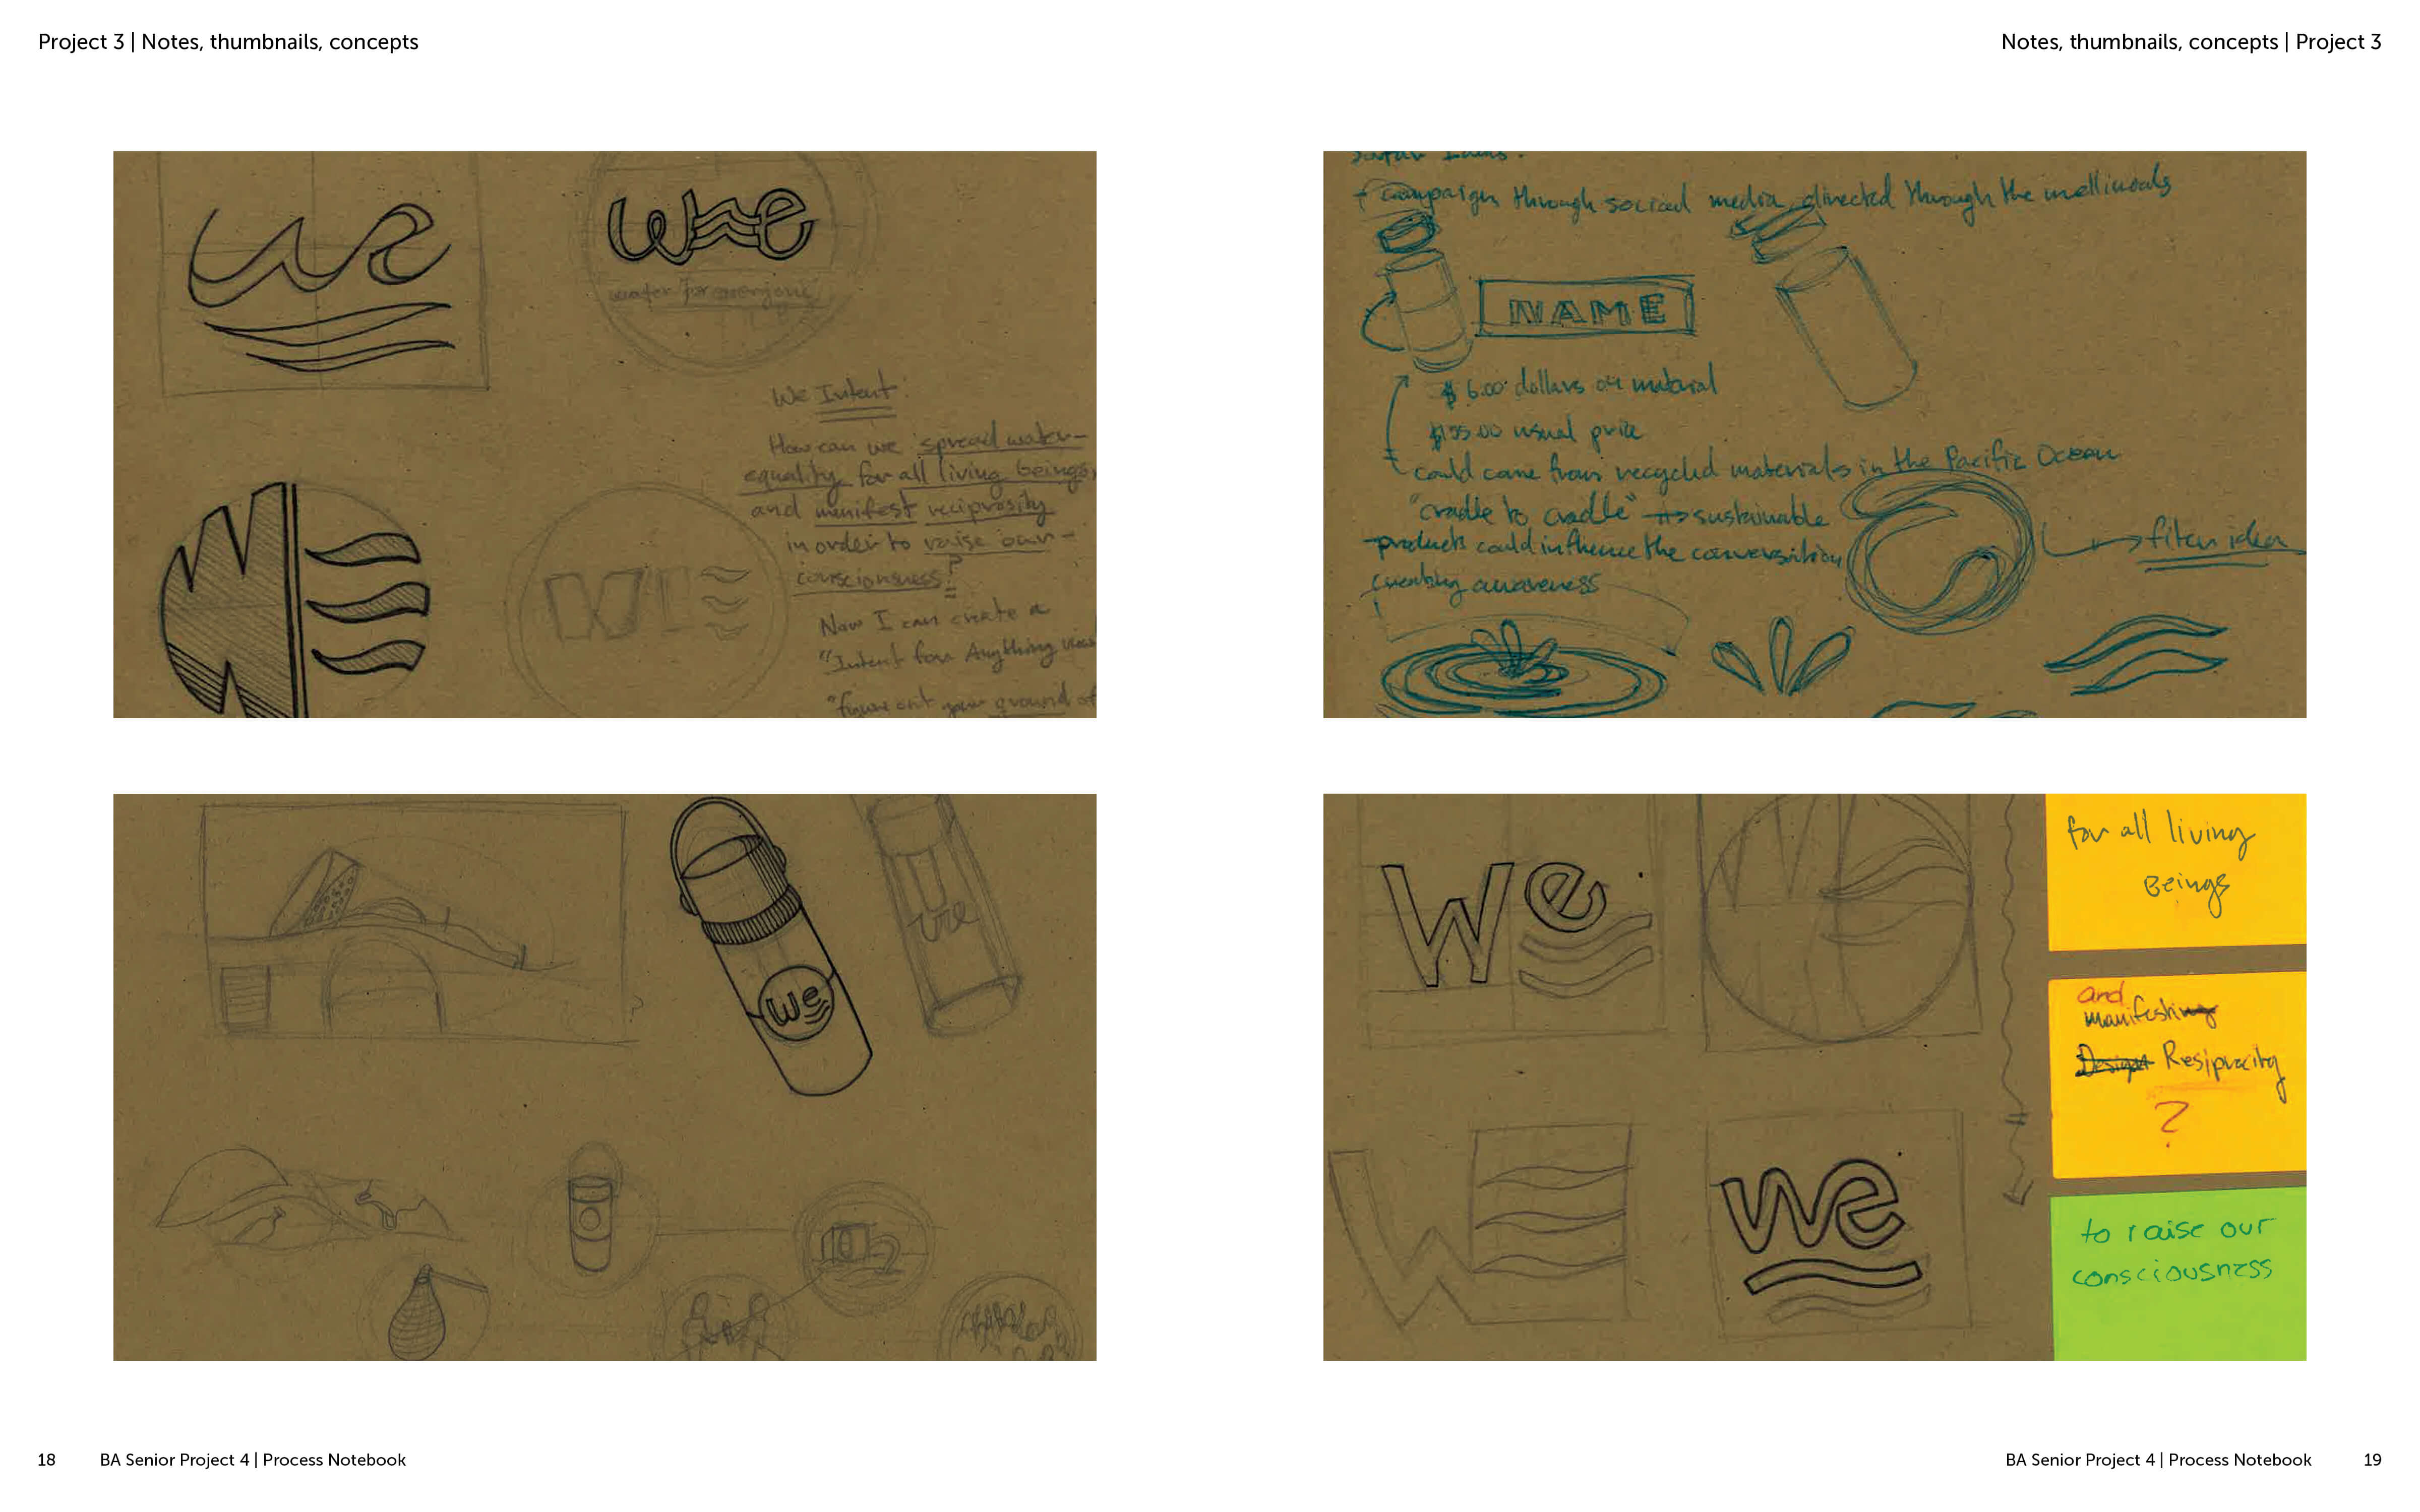 Project 3 | Notes, thumbnails, concepts
we
we
water for everyone
We Intent:
How can we spread water-
equality for all living beings,
and menifest reciprosity
in order to raise our-
consciousness?
Now I can create a
"Intent for Anything
"figure out your ground of
WE
WE
we
we
18 BA Senior Project 4 | Process Notebook
Notes, thumbnails, concepts | Project 3
campaign through social media, directed through the
NAME
$ 6.00 dollars on material
usual price
could come from recycled materials in the Pacific Ocean
"cradle to cradle" sustainable
products could influence the conversation
creating awareness
idea
We
W
We
we
for all living
Beings
and
manifesting
Design Resipracity
?
to raise our
consciousness
BA Senior Project 4 | Process Notebook 19